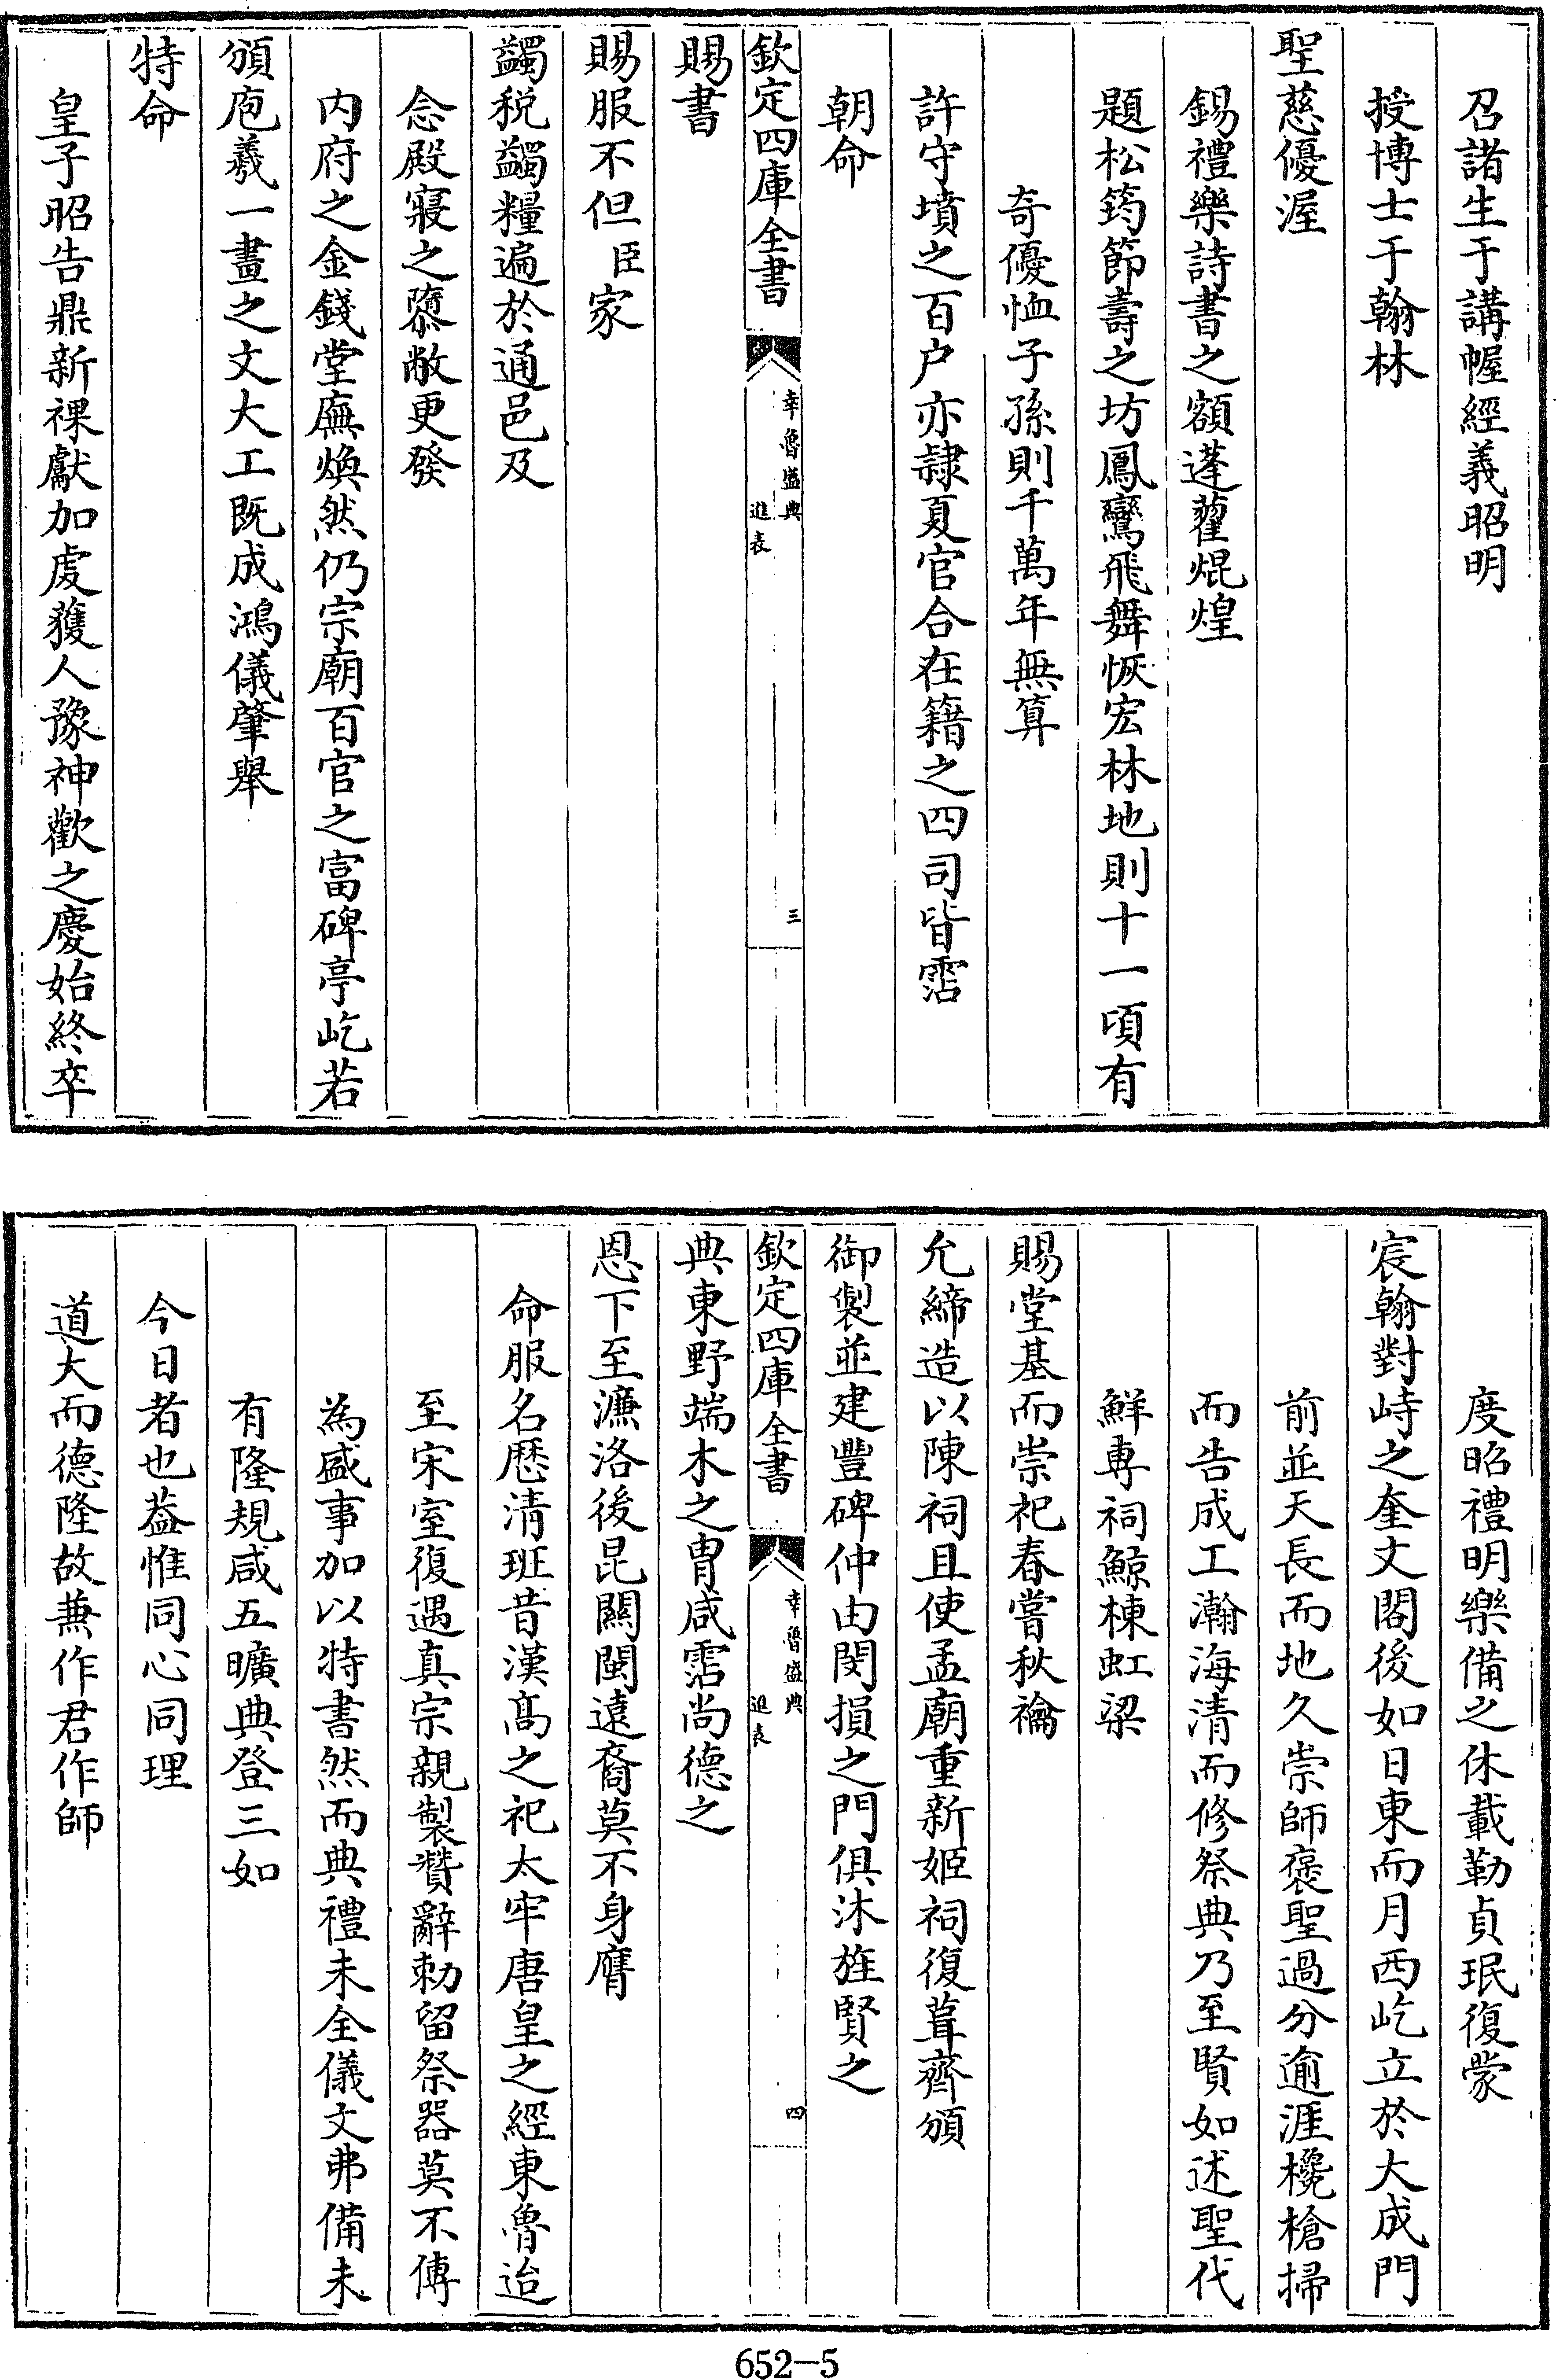 召諸生于講幄經義昭明
授博士于翰林
聖慈優渥
錫禮樂詩書之額蓬蓽焜煌
題松筠節壽之坊鳳鸞飛舞恢宏林地則十一頃有
奇優恤子孫則千萬年無算
許守墳之百户亦隷夏官合在籍之四司皆霑
朝命
欽定四庫全書
幸魯盛典
進表
三
賜書
賜服不但臣家
蠲税蠲糧遍於通邑及
念殿寢之隳敝更發
内府之金錢堂廡煥然仍宗廟百官之富碑亭屹若
頒庖羲一畫之文大工既成鴻儀肇舉
特命
皇子昭告鼎新祼獻加虔獲人豫神歡之慶始終卒
度昭禮明樂備之休載勒貞珉復蒙
宸翰對峙之奎文閣後如日東而月西屹立於大成門
前並天長而地久崇師褒聖過分逾涯欃槍掃
而告成工瀚海清而修祭典乃至賢如述聖代
鮮專祠鯨棟虹梁
賜堂基而崇祀春嘗秋禴
允締造以陳祠且使孟廟重新姬祠復葺齊頒
御製並建豐碑仲由閔損之門俱沐旌賢之
欽定四庫全書
幸魯盛典
進表
四
典東野端木之胄咸霑尚德之
恩下至濂洛後昆關閩遠裔莫不身膺
命服名歷清班昔漢髙之祀太牢唐皇之經東魯迨
至宋室復遇真宗親製贊辭勅留祭器莫不傳
為盛事加以特書然而典禮未全儀文弗備未
有隆規咸五曠典登三如
今日者也葢惟同心同理
道大而德隆故兼作君作師
652-5